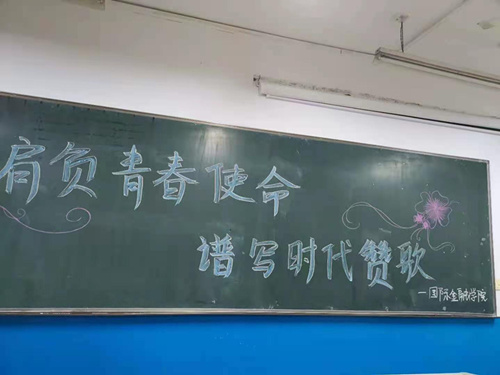 肩负青春使命
谱写时代赞歌
一国际金融学院